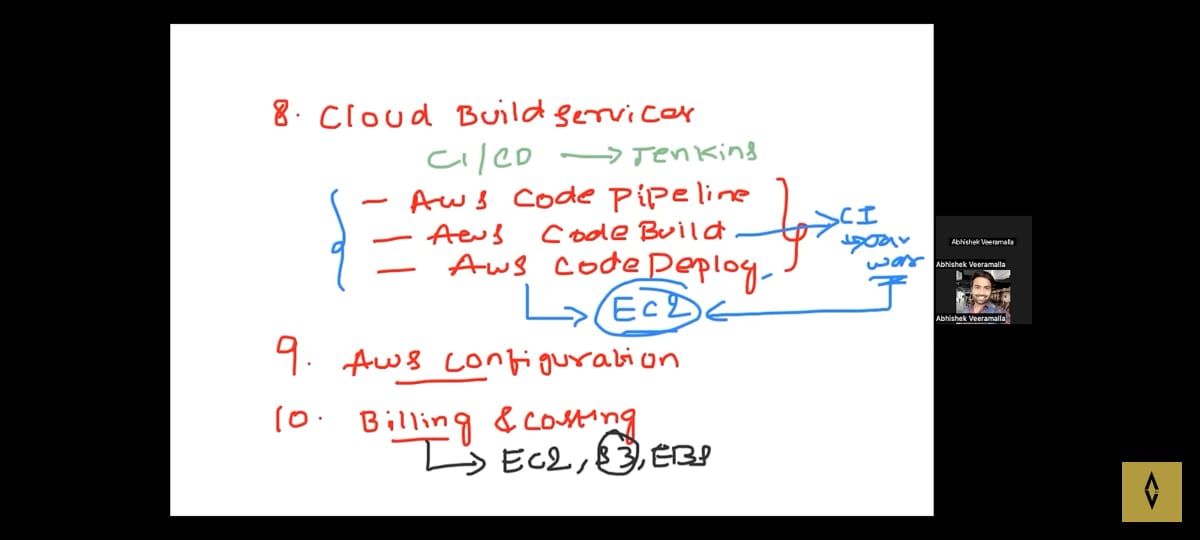 8. Cloud Build Services
CI/CD → Jenkins
- AWS Code Pipeline
- AWS Code Build → CI
- AWS Code Deploy
war
EC2
9. AWS Configuration
10. Billing & costing
EC2, S3, EBS
Abhishek Veeramalla
Abhishek Veeramalla
Abhishek Veeramalla